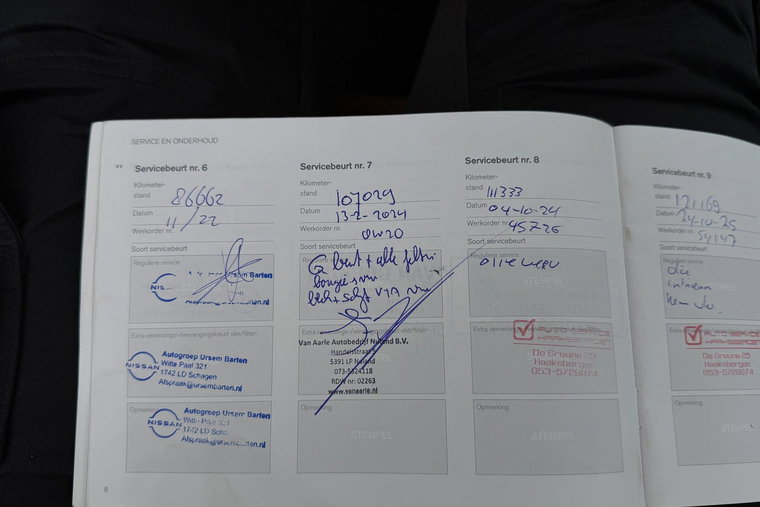 SERVICE EN ONDERHOUD
Servicebeurt nr. 6
Kilometer-
stand 86662
Datum 11/22
Werkorder nr.
Soort servicebeurt
Reguliere service
Ursem Barten
NISSAN
Extra verversings-/vervangingsbeurt olie/filters
Autogroep Ursem Barten
Witte Paal 321
NISSAN
1742 LD Schagen
Afspraak@ursembarten.nl
Opmerking
Autogroep Ursem Barten
NISSAN
Witte Paal 321
1742 LD Scha
8
Servicebeurt nr. 7
Kilometer-
stand 107029
Datum 13-2-2024
Werkorder nr. 0W20
Soort servicebeurt
beurt + alle filters
bougies
Extra verversings-/vervangingsbeurt olie/filters
Van Aarle Autobedrijf Nuland B.V.
Handelsstraat
5391 LP Nuland
073-5324118
RDW nr: 02263
www.vanaarle.nl
Opmerking
STEMPEL
Servicebeurt nr. 8
Kilometer-
stand 111333
Datum 04-10-24
Werkorder nr. 45726
Soort servicebeurt
Reguliere service
olie
STEMPEL
Extra verversings-/vervangingsbeurt olie/filters
HAAKSBERGEN
De Greune 25
Haaksbergen
053-5729074
Opmerking
STEMPEL
Servicebeurt nr. 9
Kilometer-
stand 121169
Datum 24-10-25
Werkorder nr. 54147
Soort servicebeurt
Reguliere service
olie
AUTOSERVICE
HAAKSBERGEN
De Greune 25
Haaksbergen
053-5729074
Opmerking
STEMPEL